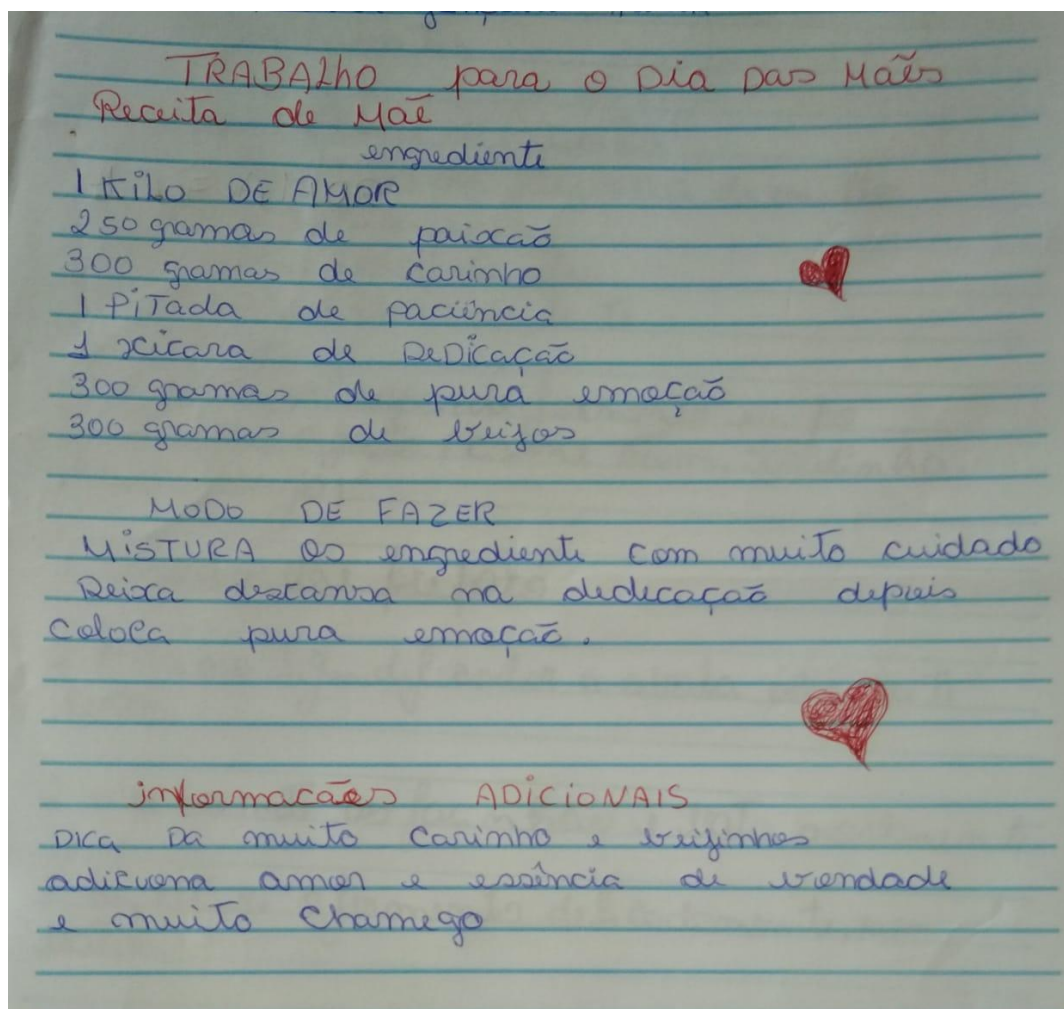 TRABALho para o Dia Das Mães
Receita de Mãe
engrediente
1 KiLO DE AMOR
250 gramas de paixcaõ
300 gramas de Carinho
1 PiTada de paciência
1 xicara de DeDicação
300 gramas de pura emoção
300 gramas de beijos
MODO DE FAZER
MiSTURA os engrediente com muito cuidado
Deixa descansa na dedicação depois
Coloca pura emoção.
informacães ADiCiONAIS
Dica Da muito Carinho e beijinhos
adiciona amor e essência de
e muito Chamego